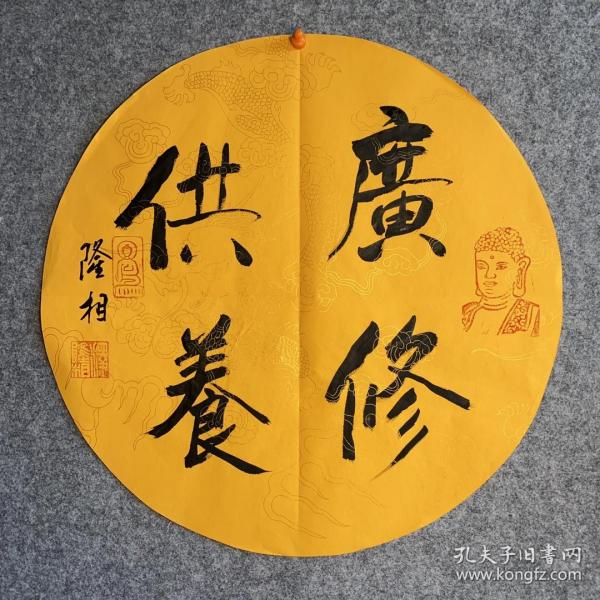 廣修
供養
隆相
孔夫子旧書网
www.kongfz.com